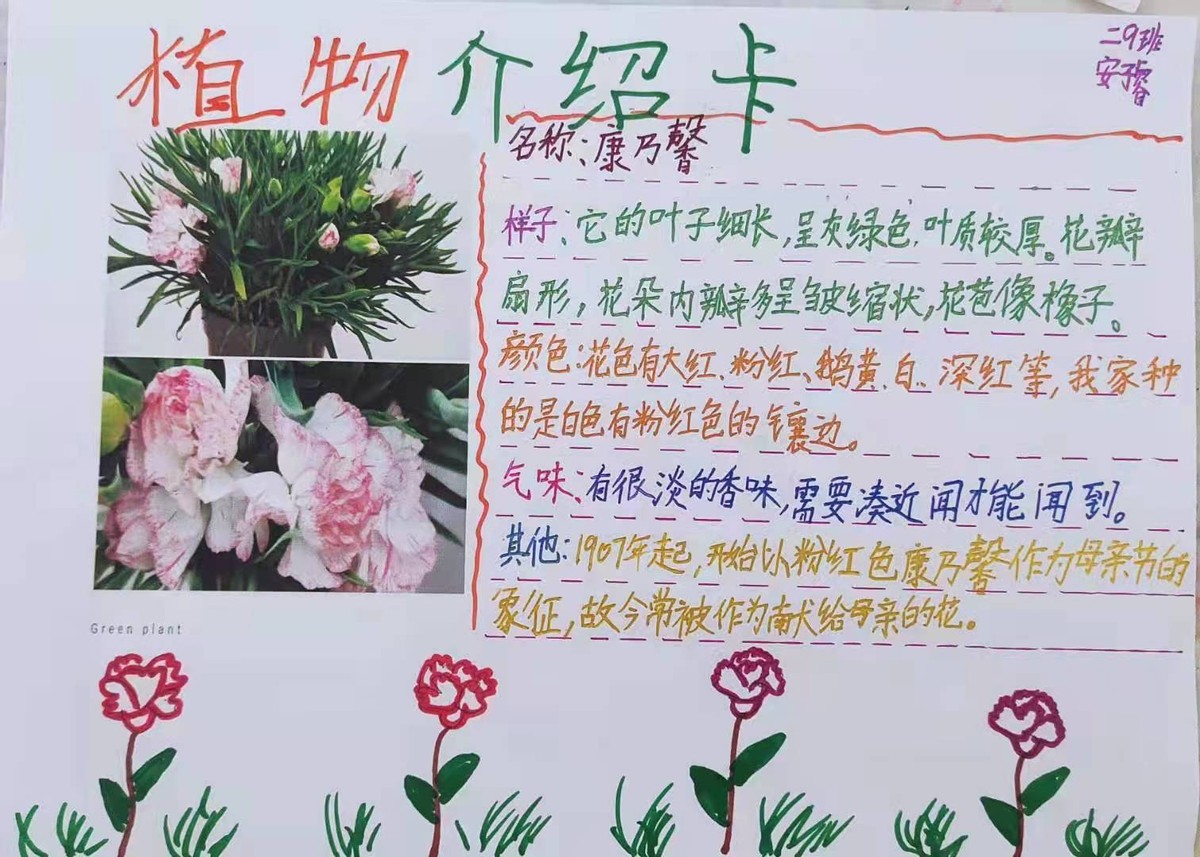 植物介绍卡
二9班
安子睿
名称：康乃馨
样子：它的叶子细长，呈灰绿色，叶质较厚。花瓣
扇形，花朵内瓣多呈皱缩状，花苞像橡子。
颜色：花色有大红、粉红、鹅黄、白、深红等，我家种
的是白色有粉红色的镶边。
气味：有很淡的香味，需要凑近闻才能闻到。
其他：1907年起，开始以粉红色康乃馨作为母亲节的
象征，故今常被作为献给母亲的花。
Green plant